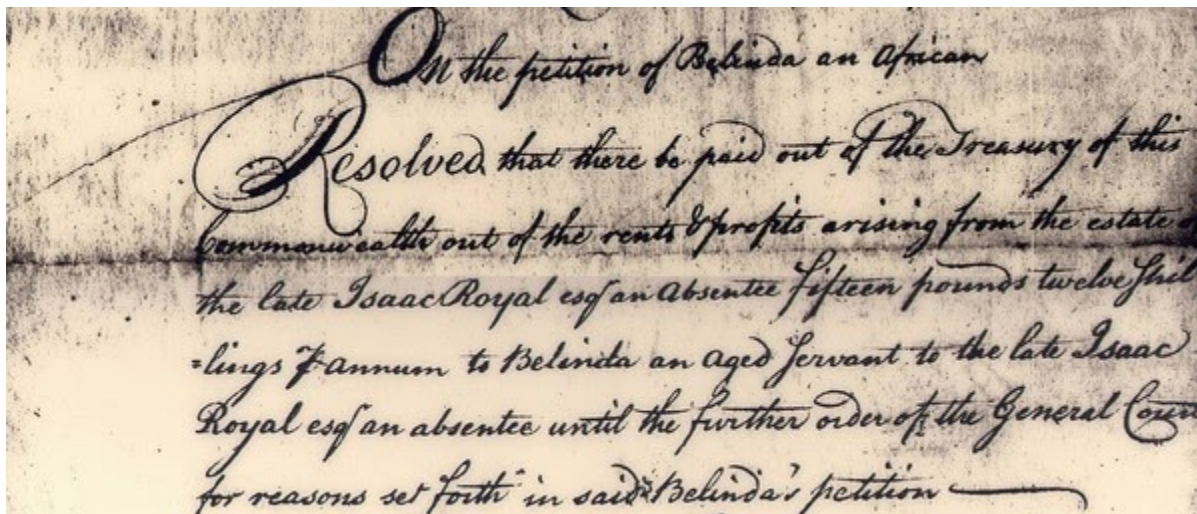 On the petition of Belinda an African
Resolved that there be paid out of the Treasury of this
Commonwealth out of the rents & profits arising from the estate of
the late Isaac Royal esqr an absentee fifteen pounds twelve shil
=lings ⅌ annum to Belinda an aged servant to the late Isaac
Royal esqr an absentee until the further order of the General Cour
for reasons set forth in said Belinda's petition